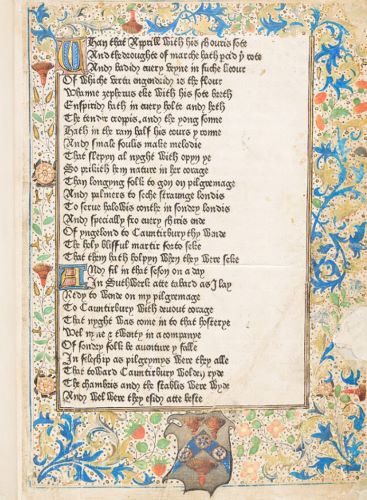 Whan that Apprill with his shouris sote
And the droughte of marche hath percid þe rote
And badid euery veyne in suche licour
Of whiche vertu engendrid is the flour
Whanne zepherus eke with his sote breth
Enspirid hath in euery holte and heth
The tendir croppis / and the yong sonne
Hath in the ram half his cours y ronne
And smale foulis make melodie
That slepyn al nyght with opyn ye
So prikith hem nature in her corage
Than longyng folk to gon on pilgremage
And palmers to seche straunge londis
To serue halowis couthe in sondry londis
And specially fro euery shiris ende
Of yngelond to Cauntirbury thy wende
The holy blisful martir forto seke
That them hath holpyn when they were seke
And fil in that seson on a day
In Suthwerk atte tabard as I lay
Redy to wende on my pilgremage
To Cauntirbury with deuout corage
That nyght was come in to that hosterye
Wel nyne & twenty in a companye
Of sondry folk be auenture y falle
In feleship as pilgrymys were they alle
That toward Cauntirbury wolden ryde
The chambris and the stablis were wyde
And wel were they esid atte beste